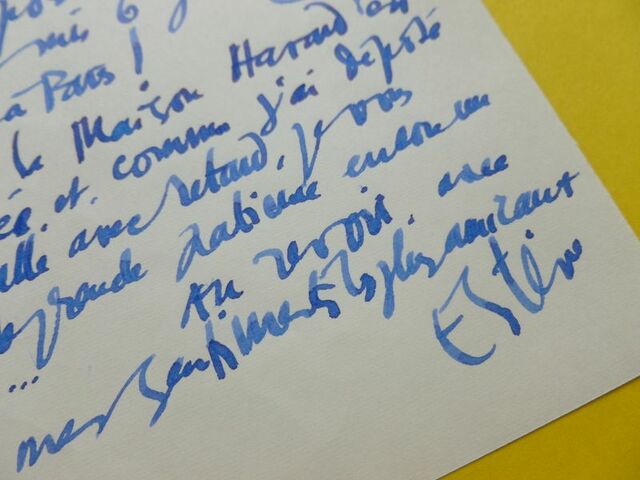 mis 6
à Paris !
la Maison
et. comme j'ai déposé
avec retard, je vous
grande patience encore un
...
Au revoir, avec
mes sentiments les plus amicaux
Estève